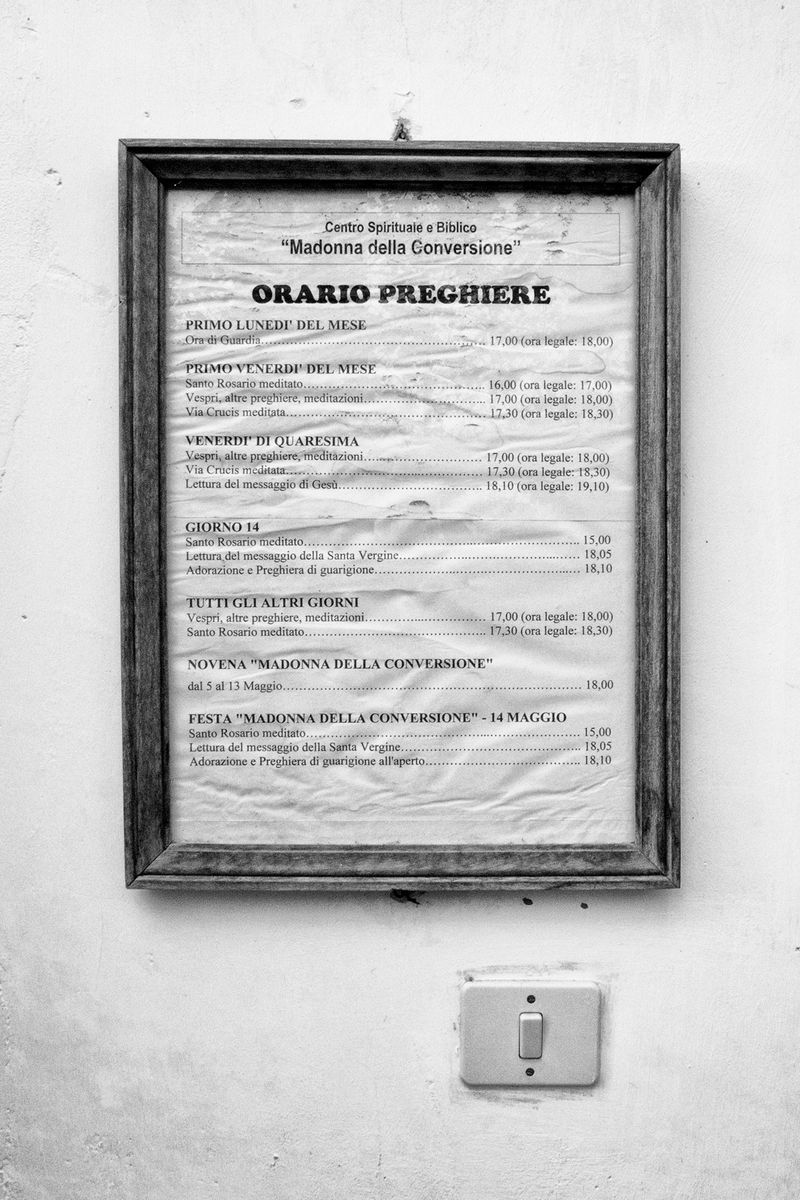 Centro Spirituale e Biblico
“Madonna della Conversione”
ORARIO PREGHIERE
PRIMO LUNEDI' DEL MESE
Ora di Guardia........................................................ 17,00 (ora legale: 18,00)
PRIMO VENERDI' DEL MESE
Santo Rosario meditato............................................. 16,00 (ora legale: 17,00)
Vespri, altre preghiere, meditazioni.............................. 17,00 (ora legale: 18,00)
Via Crucis meditata.................................................. 17,30 (ora legale: 18,30)
VENERDI' DI QUARESIMA
Vespri, altre preghiere, meditazioni............................. 17,00 (ora legale: 18,00)
Via Crucis meditata................................................. 17,30 (ora legale: 18,30)
Lettura del messaggio di Gesù.................................... 18,10 (ora legale: 19,10)
GIORNO 14
Santo Rosario meditato..................................................................... 15,00
Lettura del messaggio della Santa Vergine.............................................. 18,05
Adorazione e Preghiera di guarigione.................................................... 18,10
TUTTI GLI ALTRI GIORNI
Vespri, altre preghiere, meditazioni.............................. 17,00 (ora legale: 18,00)
Santo Rosario meditato............................................. 17,30 (ora legale: 18,30)
NOVENA "MADONNA DELLA CONVERSIONE"
dal 5 al 13 Maggio........................................................................... 18,00
FESTA "MADONNA DELLA CONVERSIONE" - 14 MAGGIO
Santo Rosario meditato..................................................................... 15,00
Lettura del messaggio della Santa Vergine............................................. 18,05
Adorazione e Preghiera di guarigione all'aperto....................................... 18,10